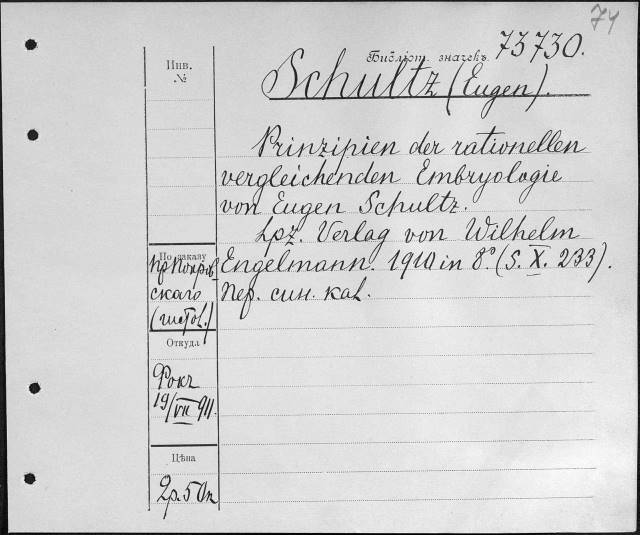 74
Библіот. значекъ 73730.
Инв.
№
Schultz (Eugen).
Prinzipien der rationellen
vergleichenden Embryologie
von Eugen Schultz.
Lpz. Verlag von Wilhelm
Engelmann. 1910 in 8º. (S. X. 233).
Пер. син. кал.
По заказу
пр Покров-
скаго
(гистол.)
Откуда
Фокъ
19/VII 911.
Цѣна
2р. 50к